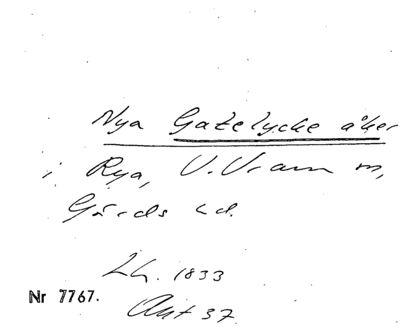 Nya Gatelycke åker
i Rya, V. Vram m,
Gärds hd.
Lh. 1833
Nr 7767.
Akt 37